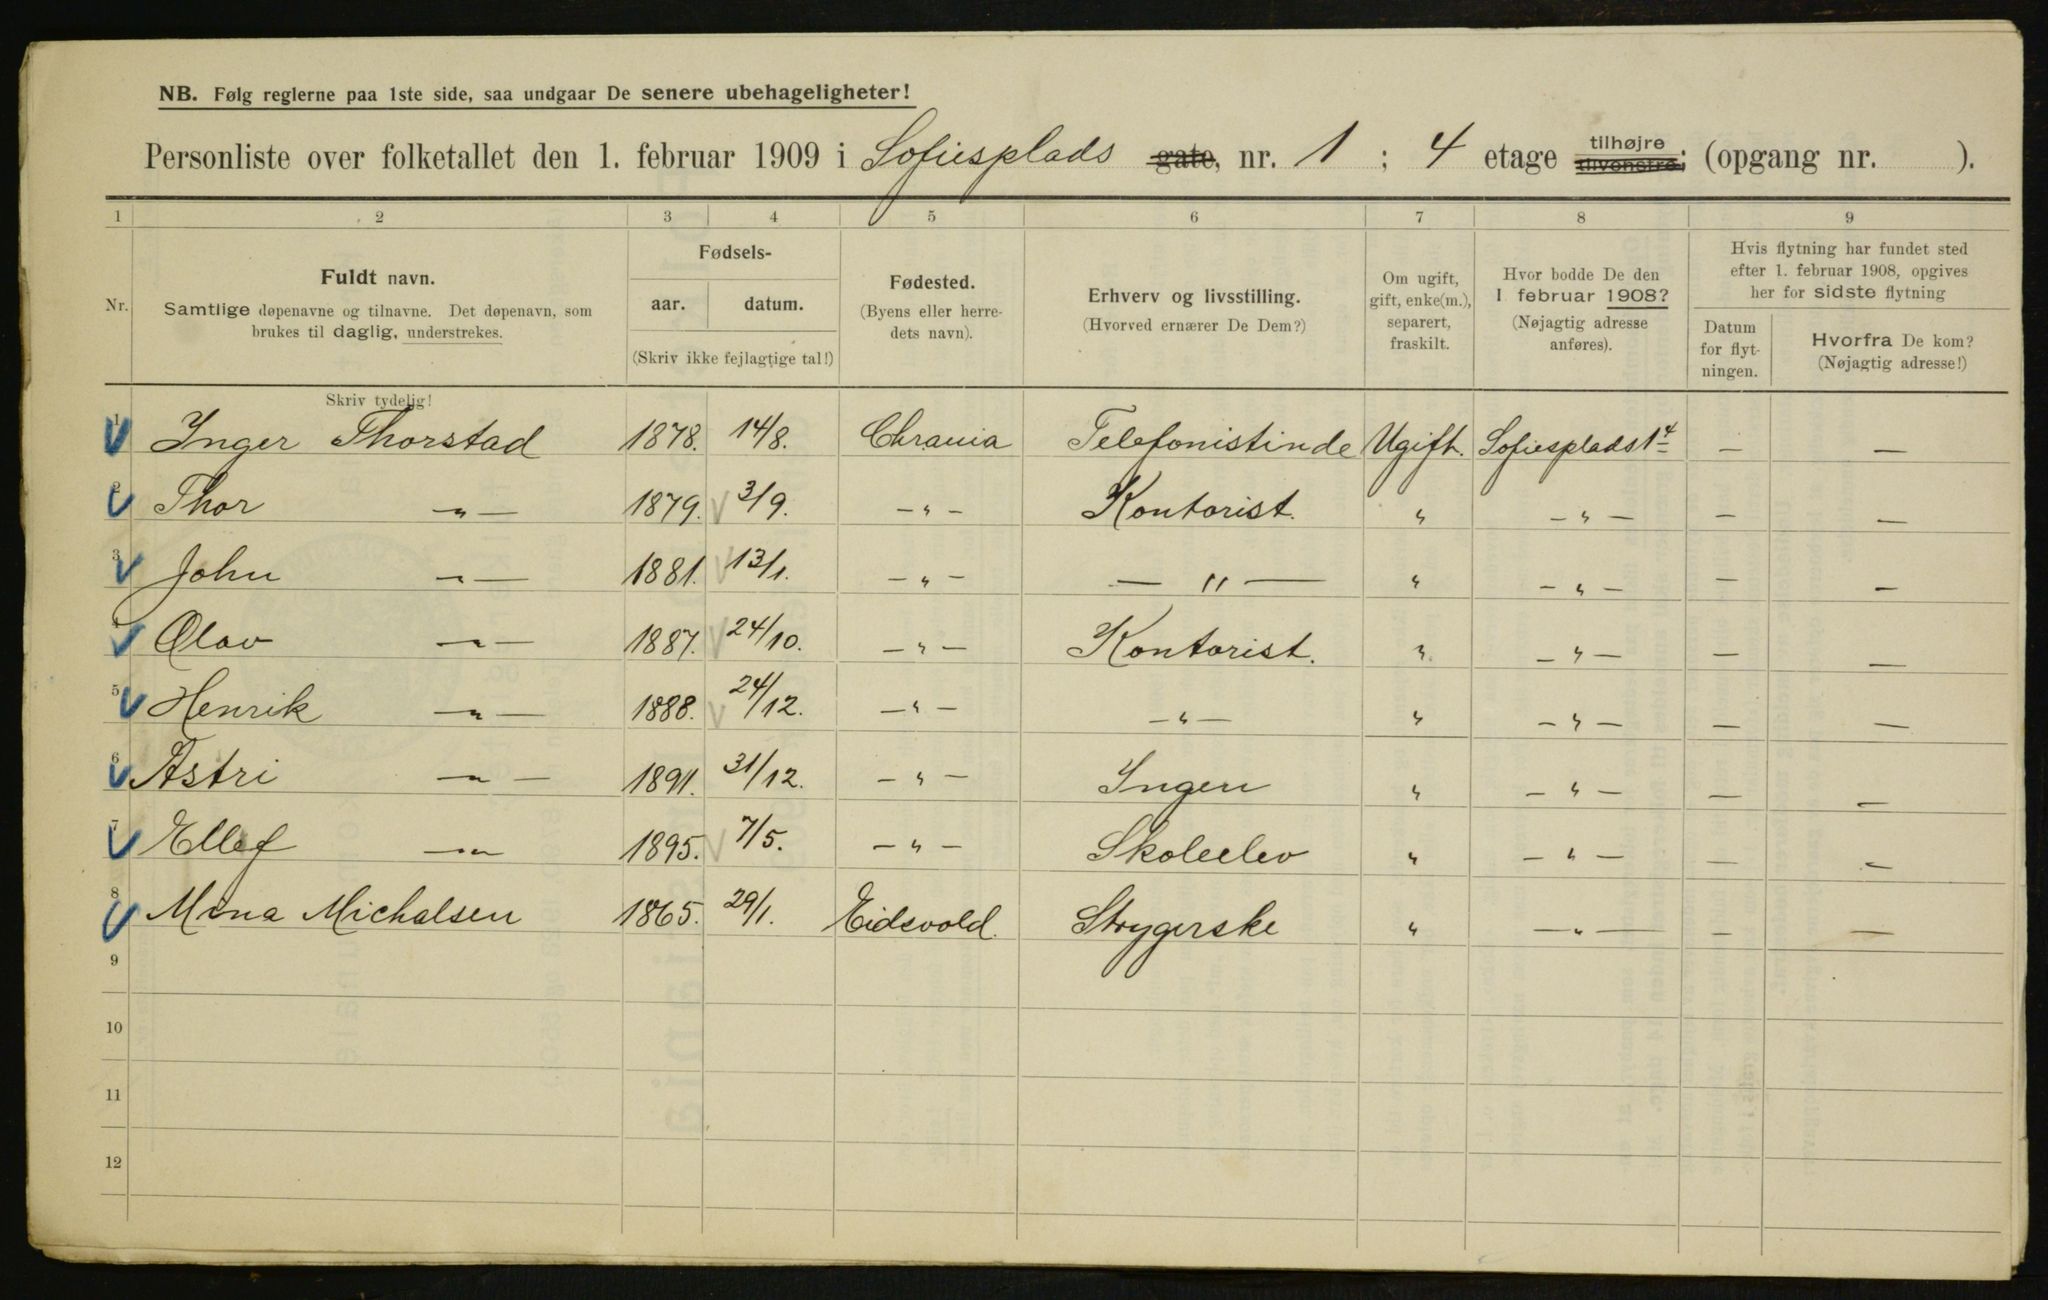 NB. Følg reglerne paa 1ste side, saa undgaar De senere ubehageligheter!
Personliste over folketallet den 1. februar 1909 i Sofiesplads gate, nr. 1 ; 4 etage tilhøjre tilvenstre; (opgang nr. ).
1 2 3 4 5 6 7 8 9
Nr.
Fuldt navn.
Samtlige døpenavne og tilnavne. Det døpenavn, som
brukes til daglig, understrekes.
Skriv tydelig!
Fødsels-
aar. datum.
(Skriv ikke fejlagtige tal!)
Fødested.
(Byens eller herre-
dets navn).
Erhverv og livsstilling.
(Hvorved ernærer De Dem?)
Om ugift,
gift, enke(m.),
separert,
fraskilt.
Hvor bodde De den
1 februar 1908?
(Nøjagtig adresse
anføres).
Hvis flytning har fundet sted
efter 1. februar 1908, opgives
her for sidste flytning
Datum
for flyt-
ningen.
Hvorfra De kom?
(Nøjagtig adresse!)
1 Inger Thorstad 1878. 14/8. Chrania Telefonistinde Ugift. Sofiesplads 1 4 — —
2 Thor —"— 1879. 3/9. —"— Kontorist. " —"— — —
3 John —"— 1881. 13/1. —"— —"— " —"— — —
4 Olav —"— 1887. 24/10. —"— Kontorist. " —"— — —
5 Henrik —"— 1888. 24/12. —"— —"— " —"— — —
6 Astri —"— 1891. 31/12. —"— Ingen " —"— — —
7 Ellef —"— 1895. 7/5. —"— Skoleelev " —"— — —
8 Mina Michalsen 1865. 29/1. Eidsvold. Strygerske " —"— — —
9
10
11
12